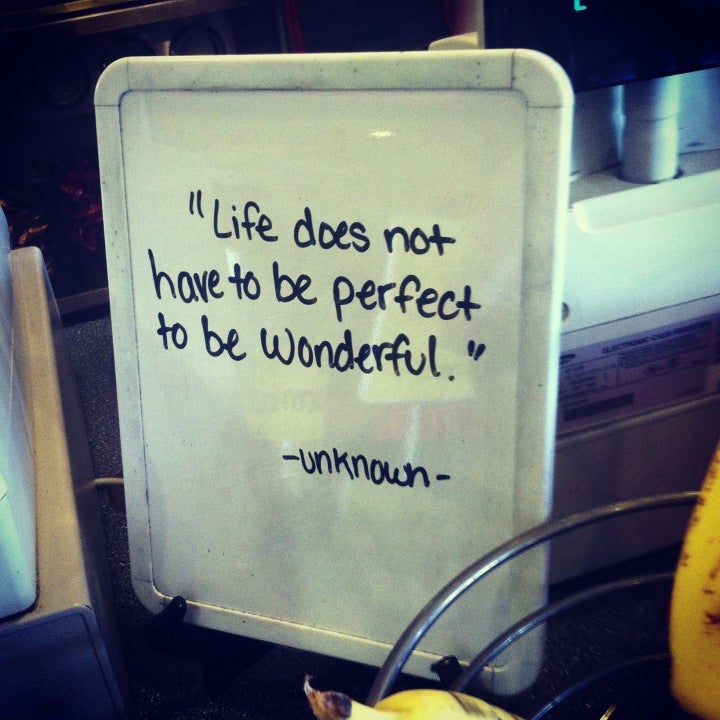 "Life does not
have to be perfect
to be wonderful."
-unknown-